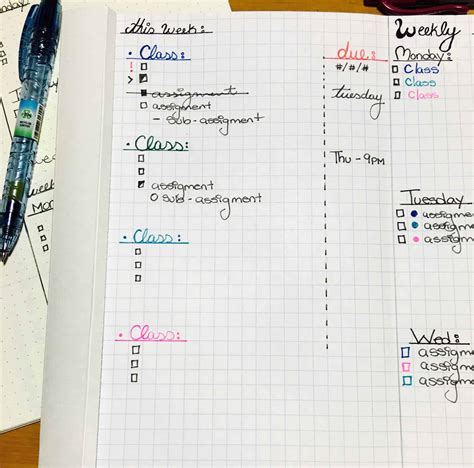 this week:
• Class:
!
>
assigment
assigment
- sub-assigment
Class:
assigment
o sub-assigment
• Class:
• Class:
due:
#/#/#
tuesday
Thu - 9PM
Weekly
Monday:
Class
Class
Class
Tuesday
assigme
assigme
assigme
Wed:
assigme
assigme
assigme